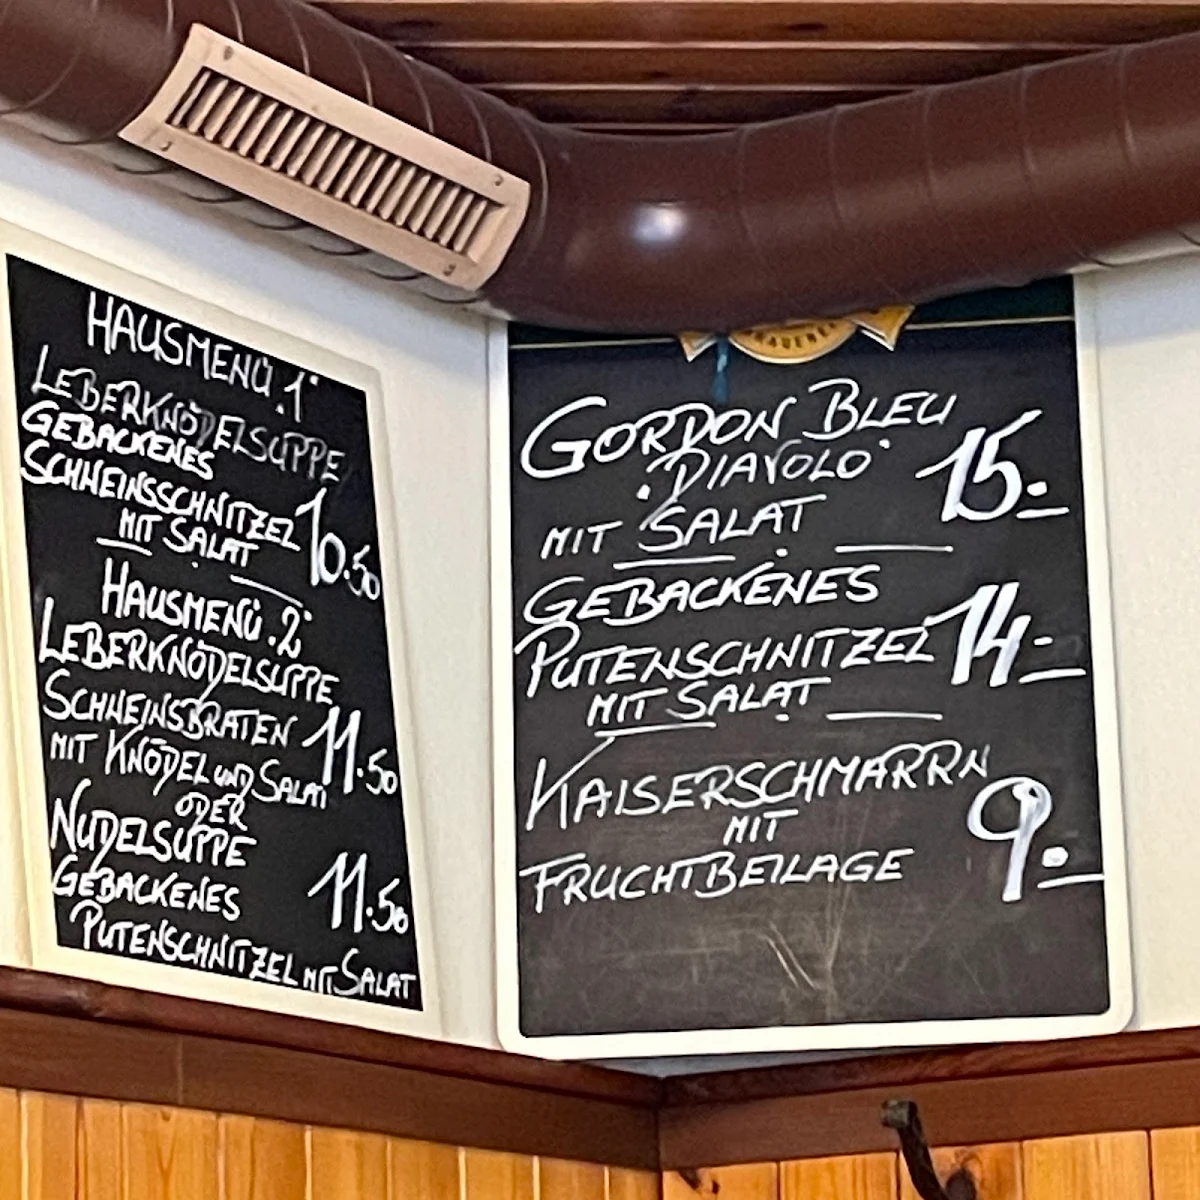 HAUSMENÜ.1
LEBERKNÖDELSUPPE
GEBACKENES
SCHWEINSSCHNITZEL 10.50
MIT SALAT
HAUSMENÜ.2
LEBERKNÖDELSUPPE
SCHWEINSBRATEN 11.50
MIT KNÖDEL UND SALAT
ODER
NUDELSUPPE
GEBACKENES 11.50
PUTENSCHNITZEL MIT SALAT
GORDON BLEU
"DIAVOLO" 15.-
MIT SALAT
GEBACKENES
PUTENSCHNITZEL 14.-
MIT SALAT
KAISERSCHMARRN
MIT 9.-
FRUCHTBEILAGE